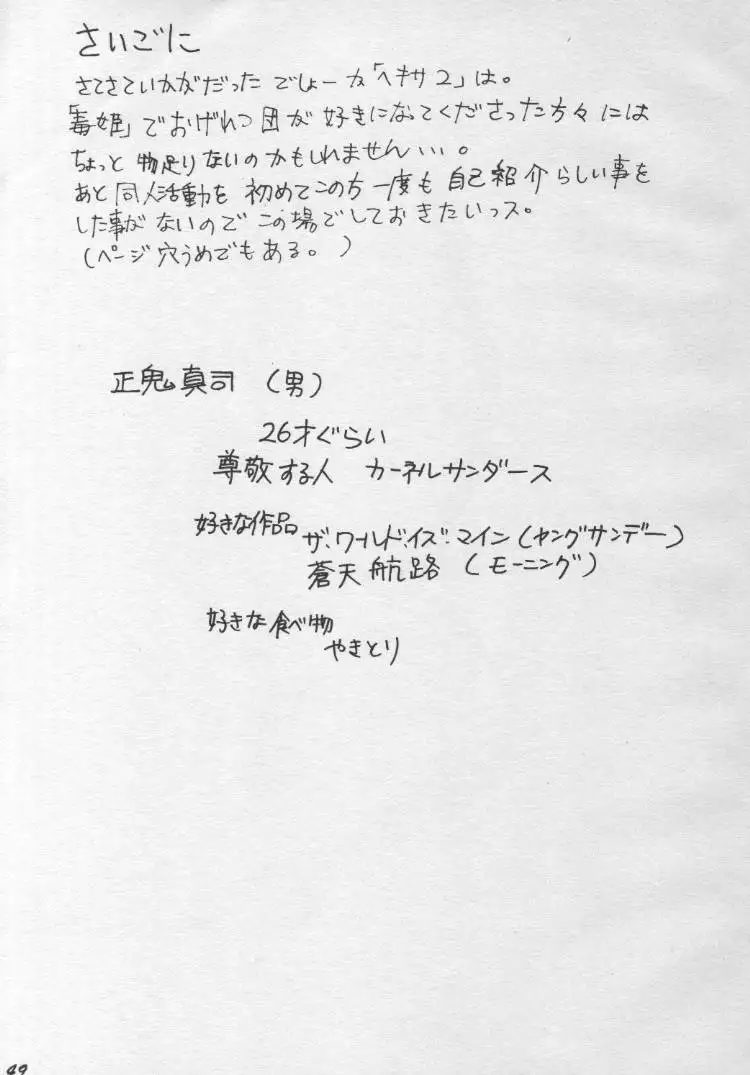 さいごに
さてさていかがだったでしょーか「ヘキサ2」は。
「毒姫」でおげれつ団が好きになってくださった方々には
ちょっと物足りないのかもしれません…。
あと同人活動を初めてこの方一度も自己紹介らしい事を
した事がないのでこの場でしておきたいっス。
(ページ穴うめでもある。)
正鬼真司 (男)
26才ぐらい
尊敬する人 カーネルサンダース
好きな作品 ザ・ワールド・イズ・マイン(ヤングサンデー)
蒼天航路 (モーニング)
好きな食べ物
やきとり
49